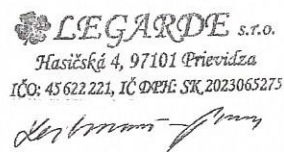 LEGARDE s.r.o.
Hasičská 4, 97101 Prievidza
IČO: 45 622 221, IČ DPH: SK 2023065275